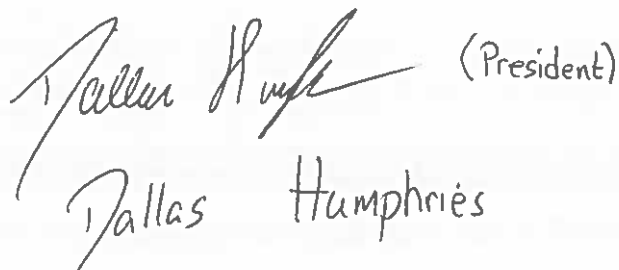 Dallas Humphries (President)
Dallas Humphries